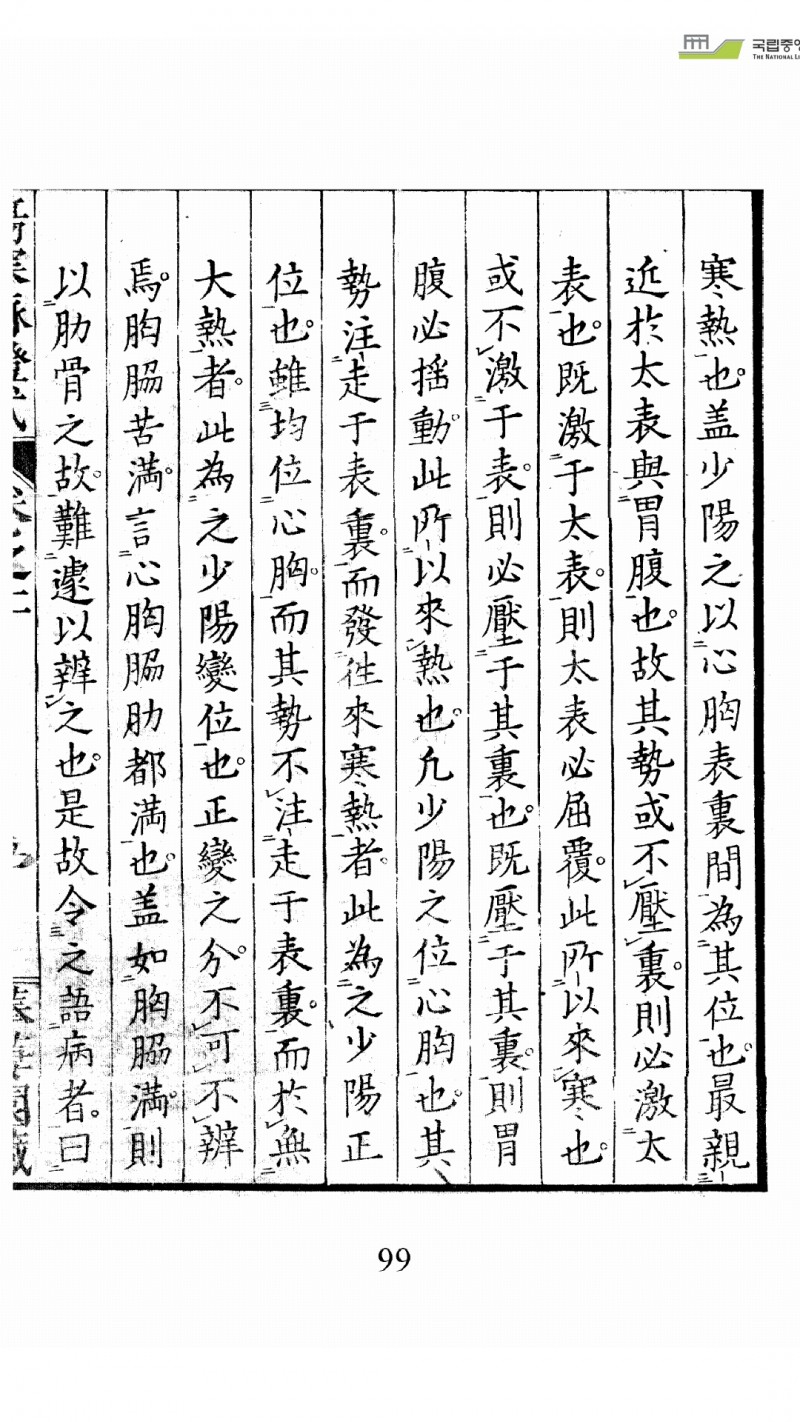 국립중앙
THE NATIONAL LI
寒熱也。盖少陽之以心胸表裏間為其位也。最親
近於太表與胃腹也。故其勢或不壓裏。則必激太
表也。既激于太表。則太表必屈覆。此所以來寒也。
或不激于表。則必壓于其裏也。既壓于其裏。則胃
腹必揺動。此所以來熱也。凢少陽之位心胸也。其
勢注走于表裏。而發徃來寒熱者。此為之少陽正
位也。雖均位心胸。而其勢不注走于表裏。而於無
大熱者。此為之少陽變位也。正變之分。不可不辨
焉。胸脇苦満。言心胸脇肋都満也。盖如胸脇満。則
以肋骨之故。難遽以辨之也。是故令之語病者。曰
傷寒脉證式
卷之二
99